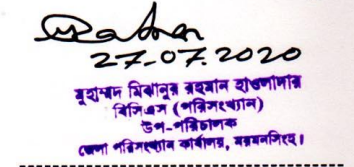 27.07.2020
মুহাম্মদ মিঝানুর রহমান হাওলাদার
বিসিএস (পরিসংখ্যান)
উপ-পরিচালক
জেলা পরিসংখ্যান কার্যালয়, ময়মনসিংহ।